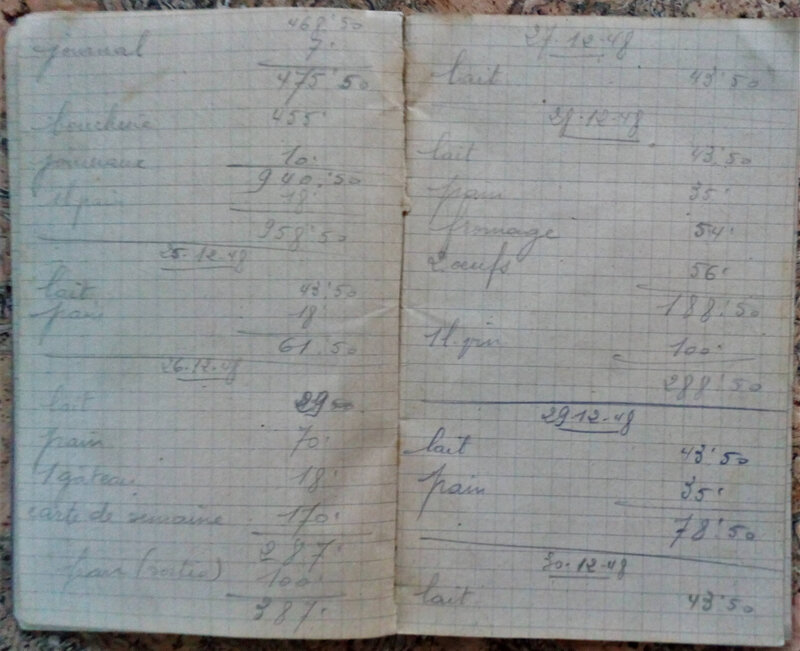 468'50
journal 7'
475'50
boucherie 455'
journaux 10'
940.'50
pain 18'
958'50
25.12.48
lait 43'50
pain 18'
61.50
26.12.48
lait 29
pain 70'
1 gâteau 18'
carte de semaine 170'
287'
pain 100'
387'
27.12.48
lait 43'50
28.12.48
lait 43'50
pain 35'
fromage 54'
2 œufs 56'
188'50
1 l. 100'
288'50
29.12.48
lait 43'50
pain 35'
78'50
30.12.48
lait 43'50